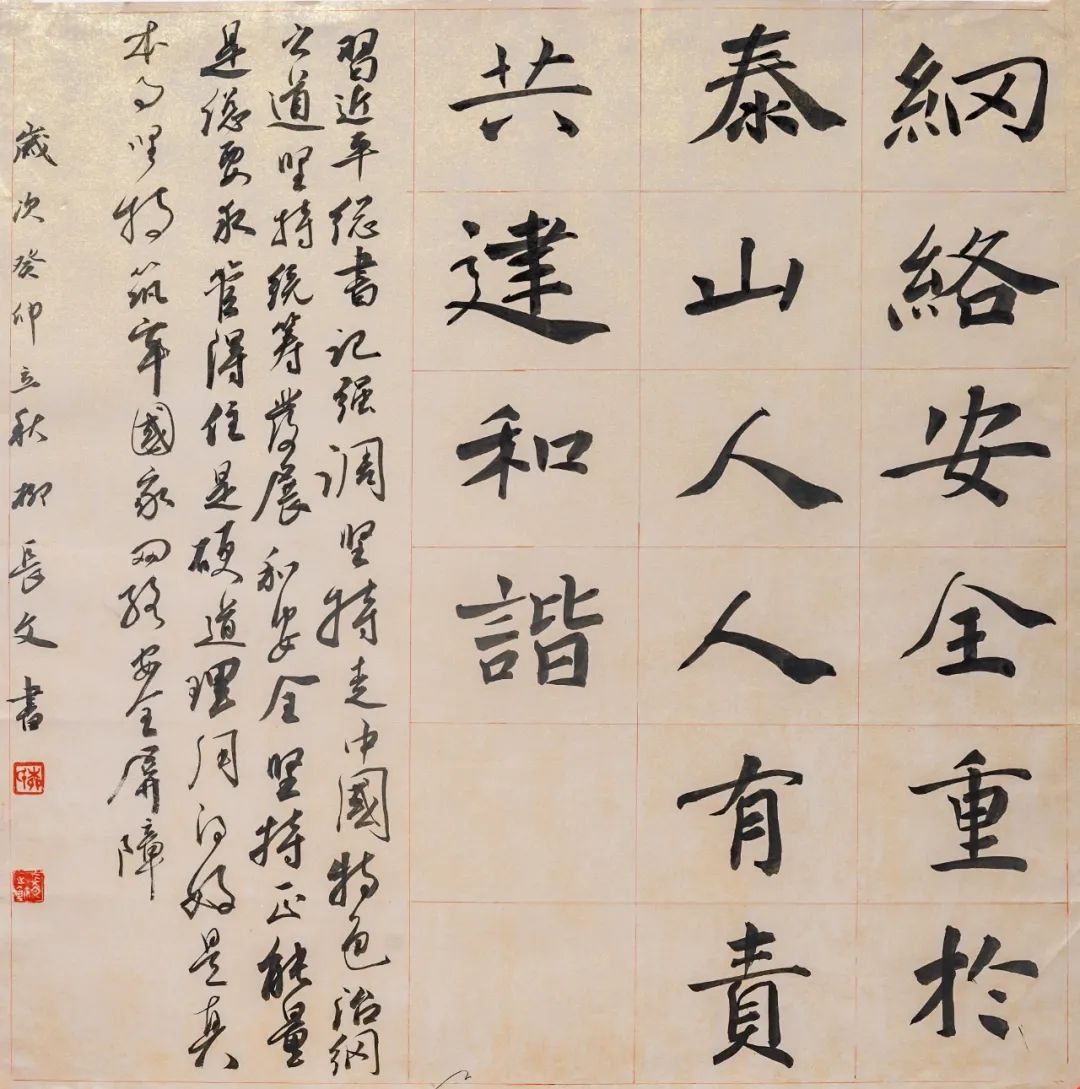 網絡安全重於
泰山人人有責
共建和諧
習近平總書记强调坚持走中國特色治網
之道坚持统筹發展和安全坚持正能量
是總要求管得住是硬道理用的好是真
本事坚持筑牢國家网络安全屏障
歲次癸卯立秋柳長文書